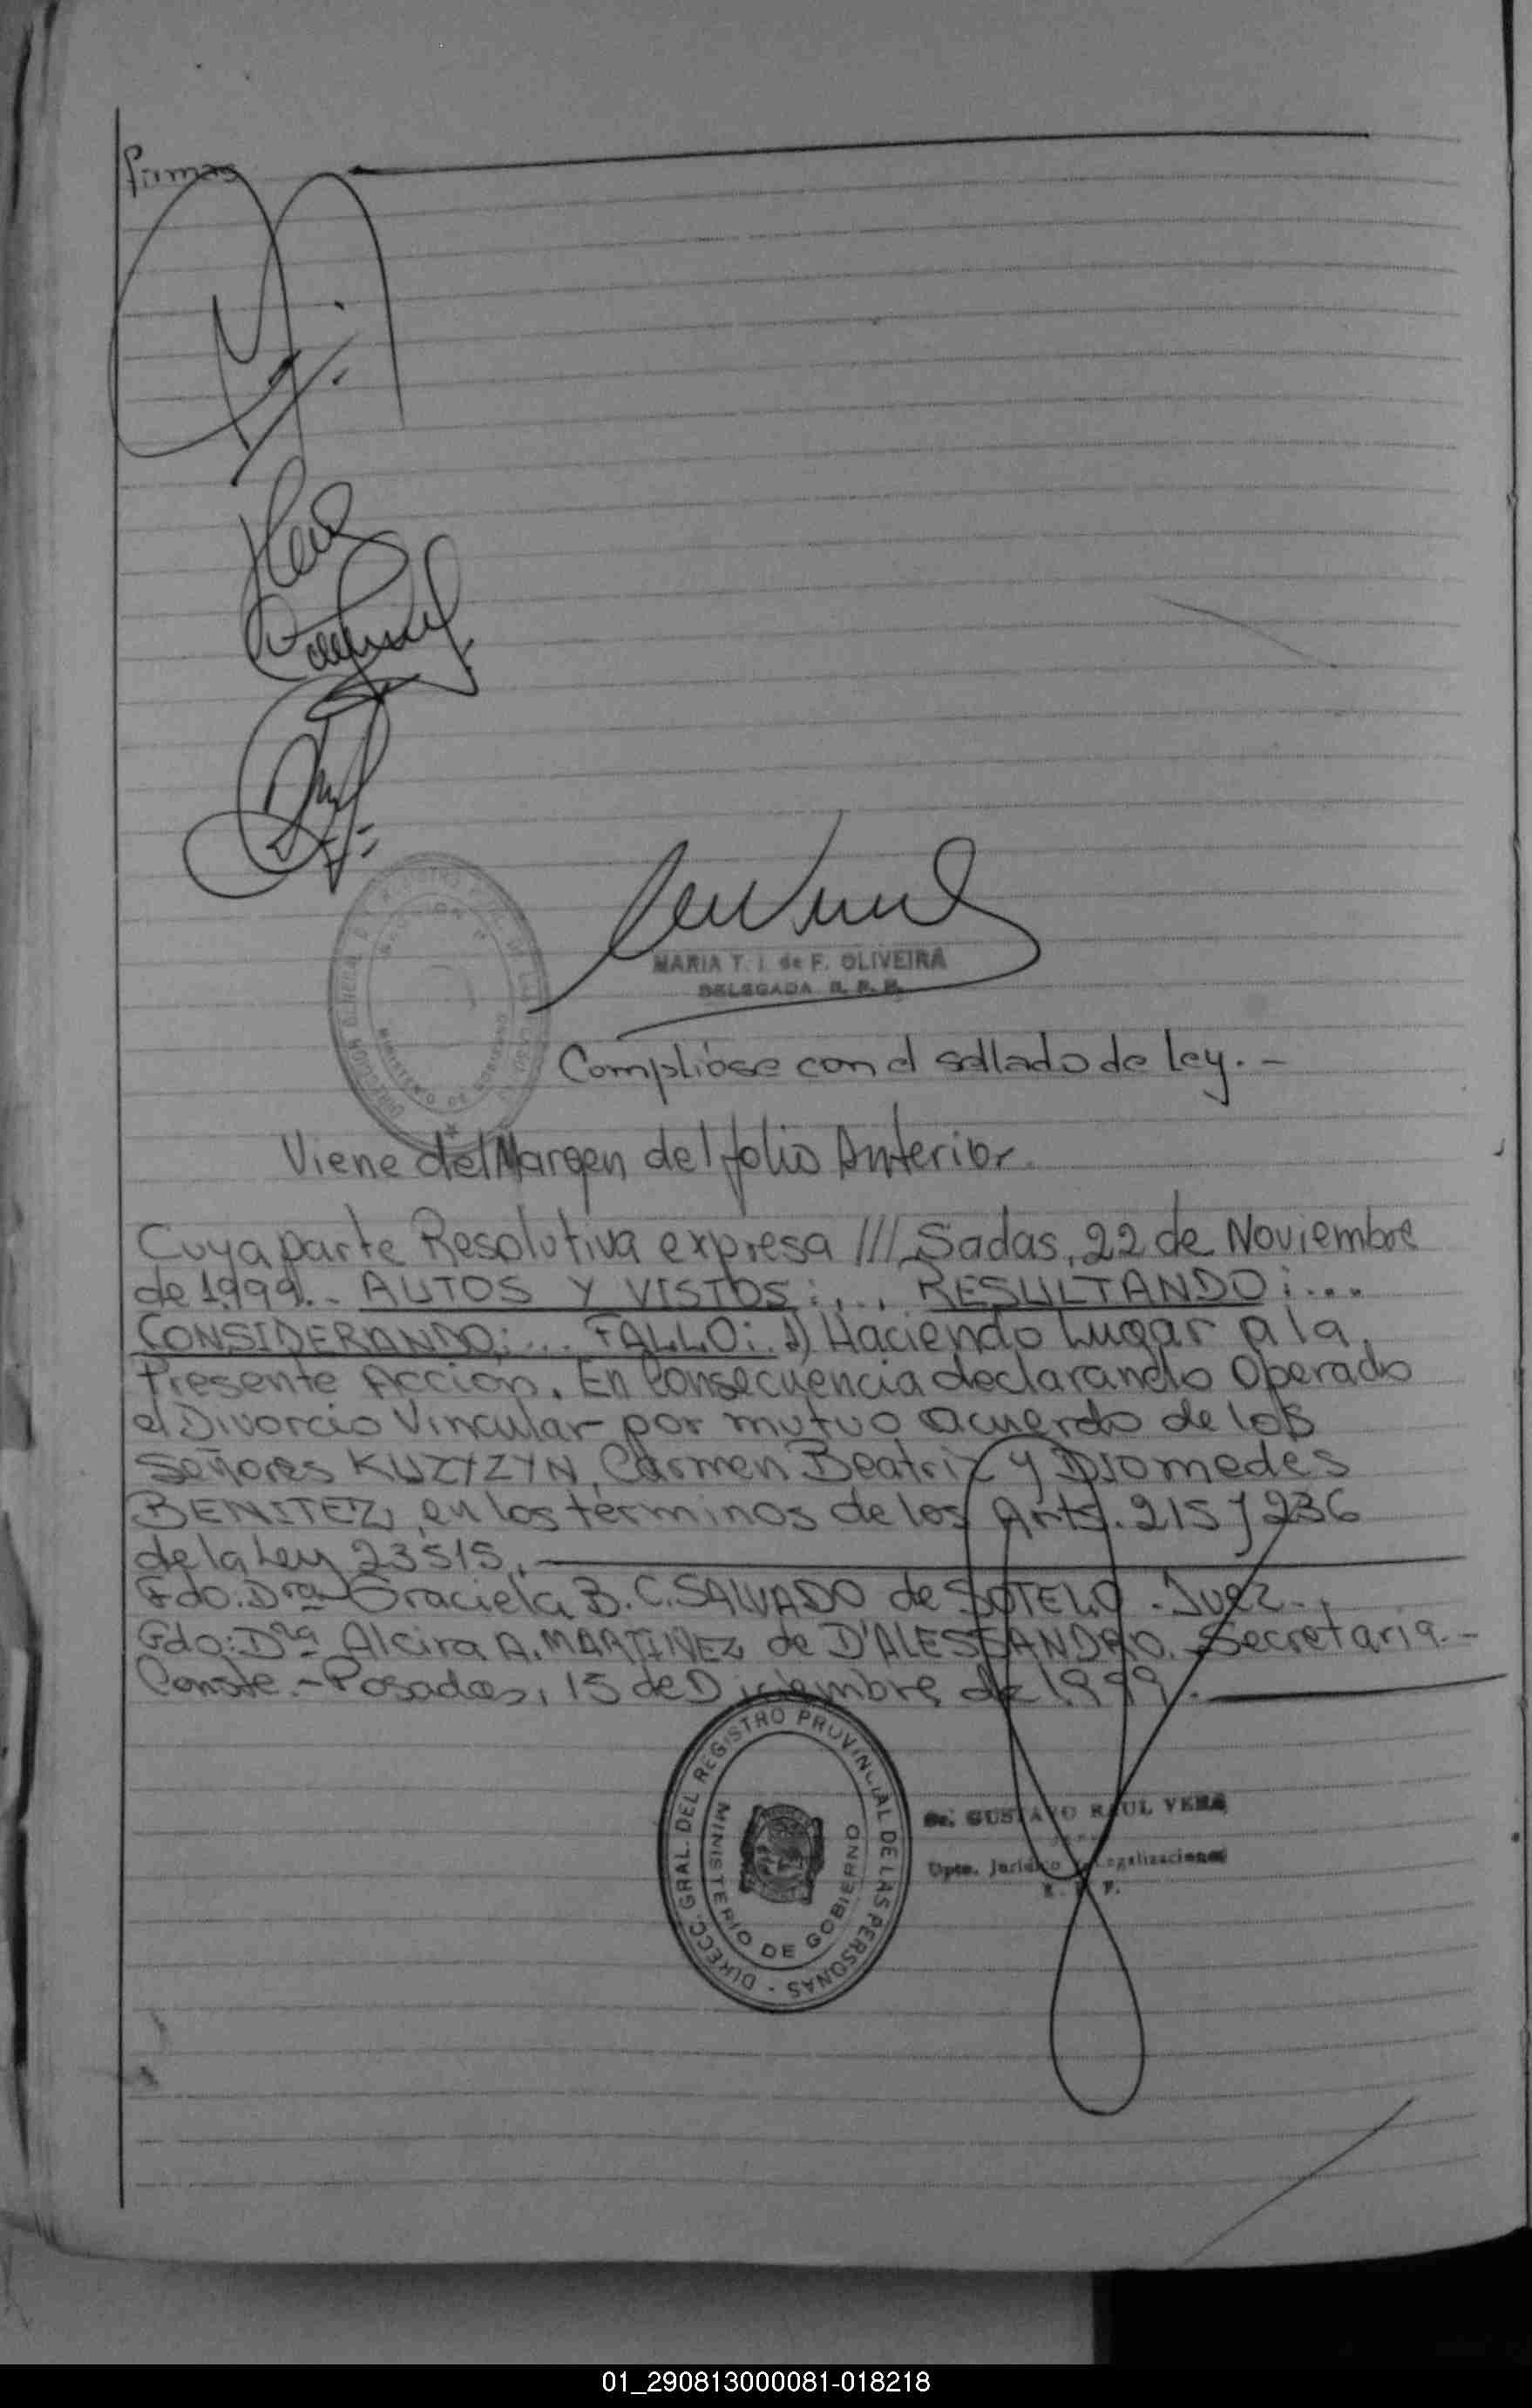 firmas
MARIA T. I. de F. OLIVEIRA
DELEGADA R. P. P.
Complióse con el sellado de Ley. -
Viene del Margen del folio Anterior.
Cuya parte Resolutiva expresa /// Sadas, 22 de Noviembre
de 1.999.- AUTOS Y VISTOS:... RESULTANDO:...
CONSIDERANDO:... FALLO: 1) Haciendo Lugar a la
Presente Acción. En Consecuencia declarando Operado
el Divorcio Vincular por mutuo acuerdo de los
Señores KUZYZYN, Carmen Beatriz y Diomedes
BENITEZ, en los términos de los Arts. 215 y 236
de la Ley 23515.
Fdo: Dra Graciela B. C. SALVADO de SOTELO - Juez -.
Fdo: Dra Alcira A. MARTINEZ de D'ALESSANDRO. Secretaria.-
Conste.- Posadas, 15 de Diciembre de 1.999.
DIRECC. GRAL. DEL REGISTRO PROVINCIAL DE LAS PERSONAS -
MINISTERIO DE GOBIERNO
GUSTAVO RAUL VERA
Dpto. Jurídico y Legalizaciones
R. P. P.
01_290813000081-018218